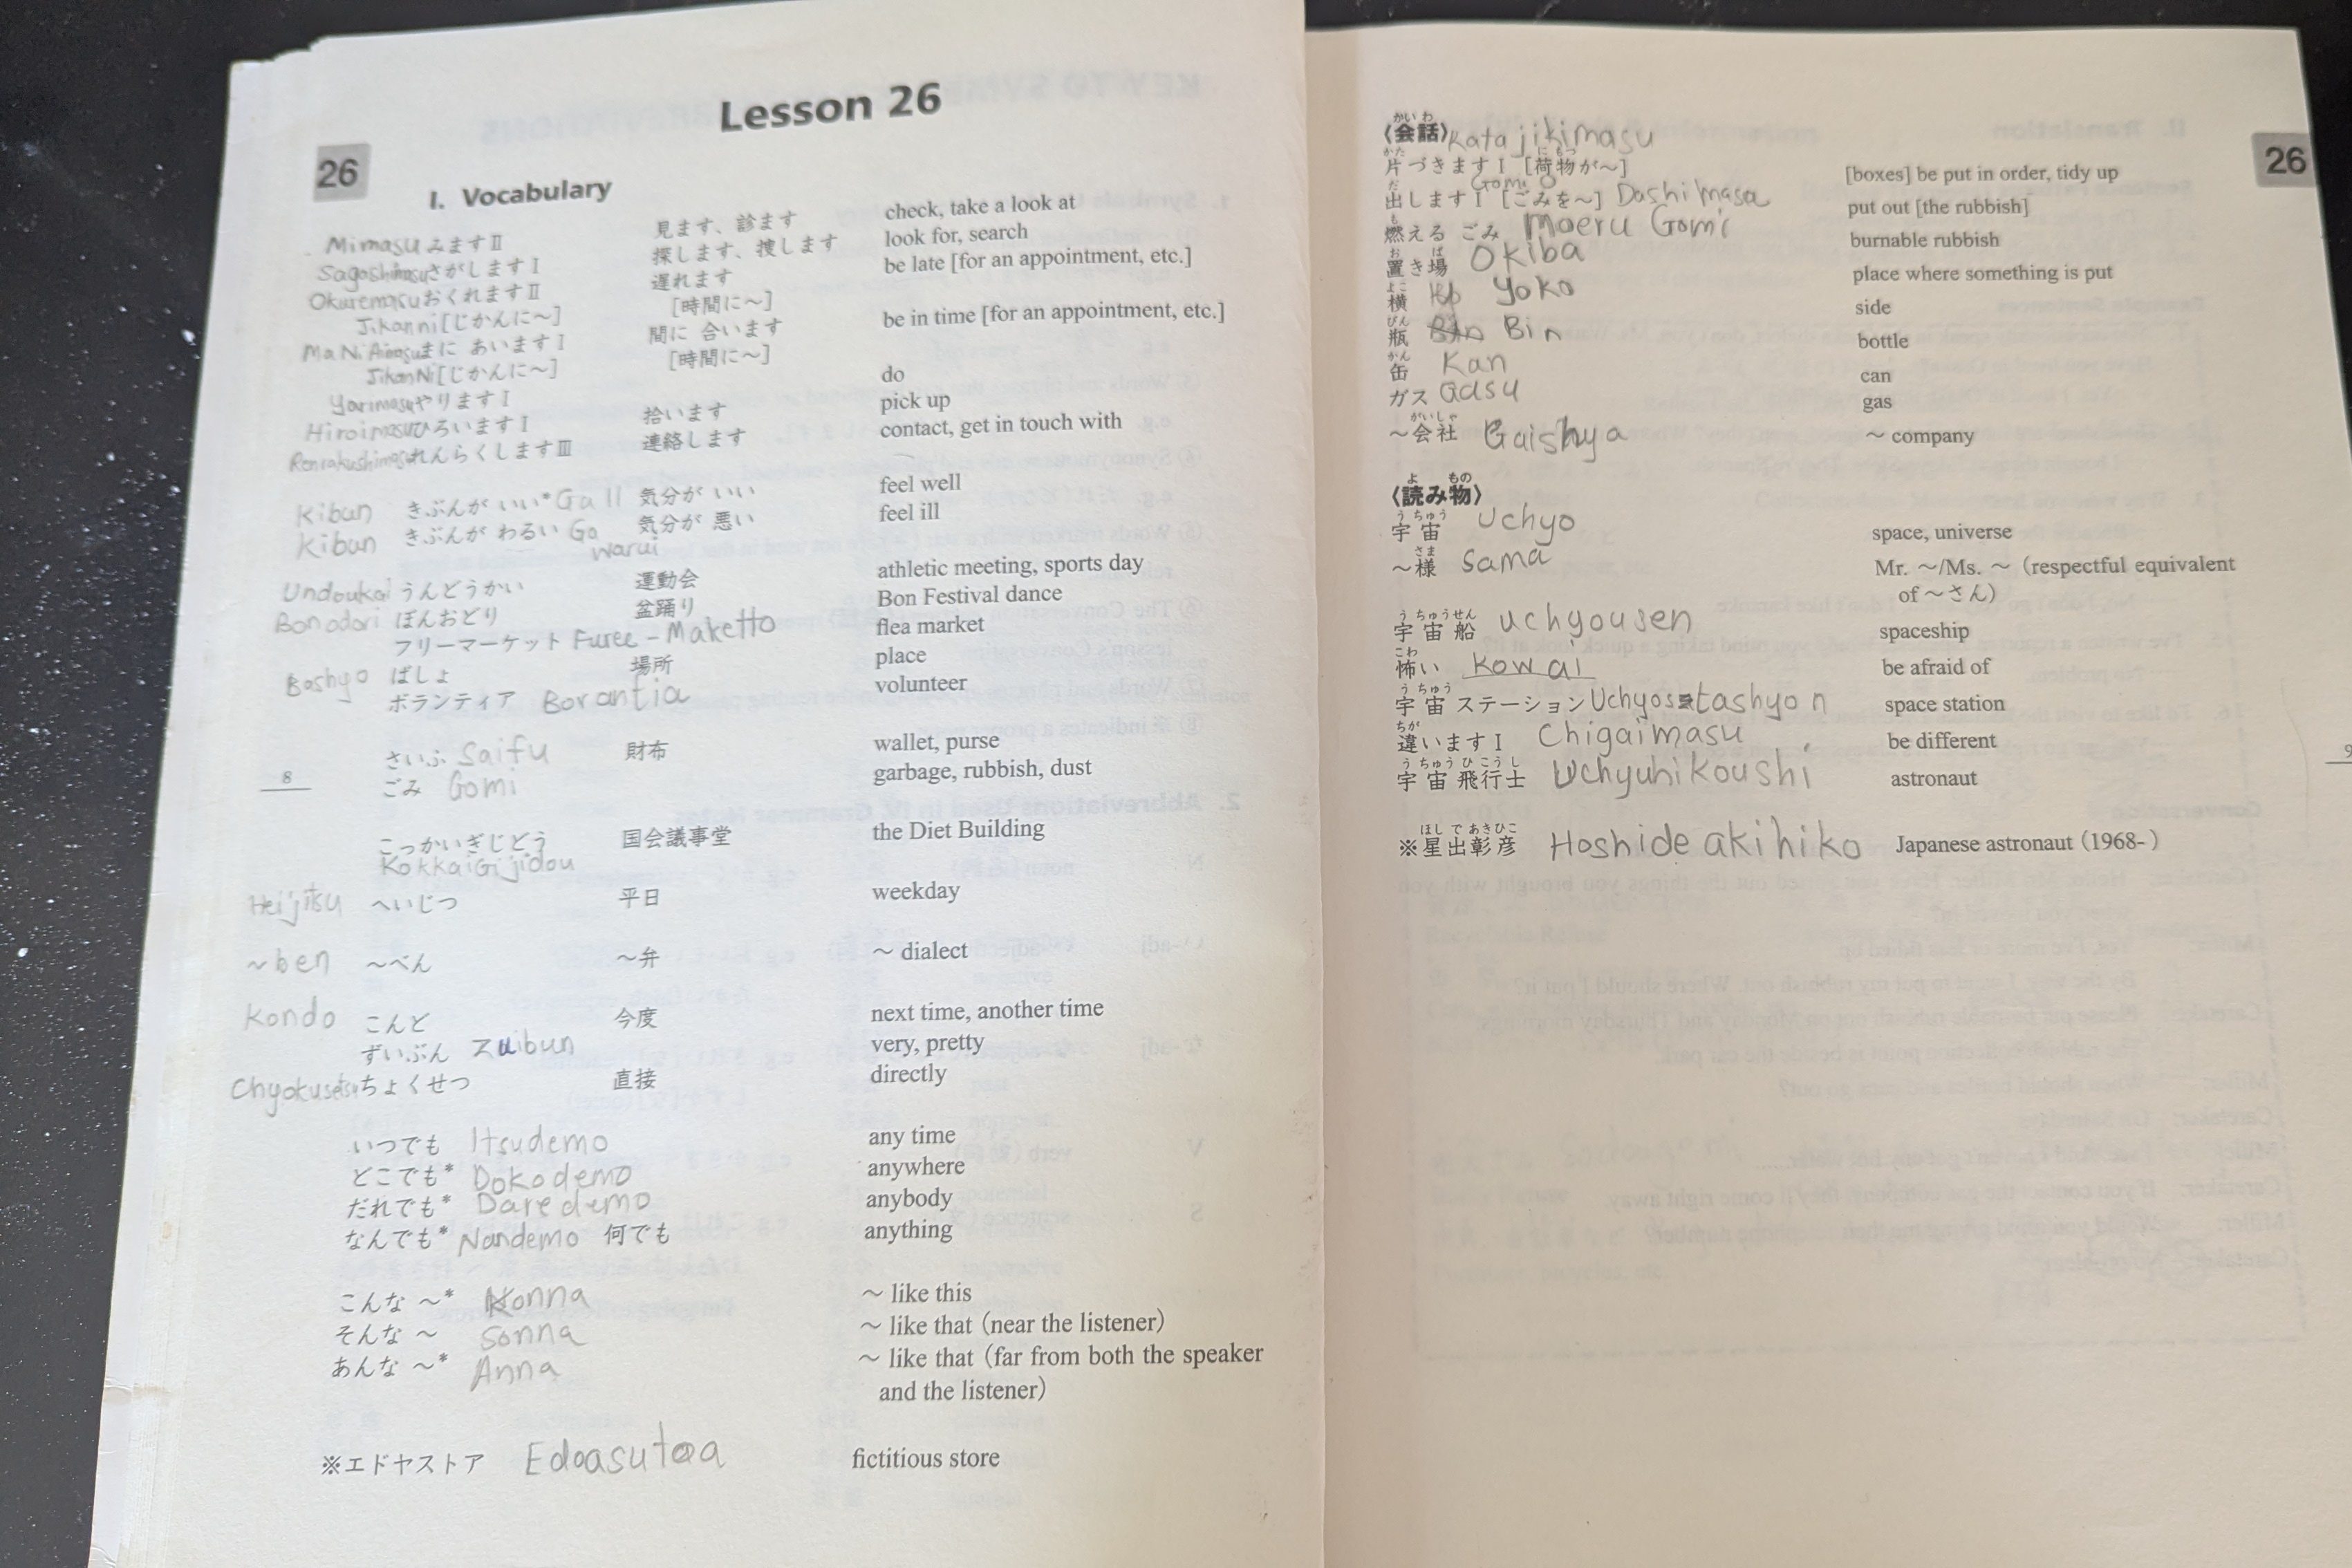 Lesson 26
26
I. Vocabulary
Mimasu みますⅡ 見ます、診ます check, take a look at
Sagashimasu さがしますⅠ 探します、捜します look for, search
Okuremasu おくれますⅡ 遅れます be late [for an appointment, etc.]
Jikan ni [じかんに〜] [時間に〜]
Ma Ni Aimasu まに あいますⅠ 間に 合います be in time [for an appointment, etc.]
Jikan Ni [じかんに〜] [時間に〜]
Yarimasu やりますⅠ do
Hiroimasu ひろいますⅠ 拾います pick up
Renrakushimasu れんらくしますⅢ 連絡します contact, get in touch with
Kibun きぶんが いい* Ga II 気分が いい feel well
Kibun きぶんが わるい Ga 気分が 悪い feel ill
Warui
Undoukai うんどうかい 運動会 athletic meeting, sports day
Bonodori ぼんおどり 盆踊り Bon Festival dance
フリーマーケット Furee - Maketto flea market
Bashyo ばしょ 場所 place
ボランティア Borantia volunteer
さいふ Saifu 財布 wallet, purse
ごみ Gomi garbage, rubbish, dust
8
こっかいぎじどう 国会議事堂 the Diet Building
KokkaiGijidou
Heijitsu へいじつ 平日 weekday
~ben 〜べん 〜弁 〜 dialect
Kondo こんど 今度 next time, another time
ずいぶん Zuibun very, pretty
Chyokusetsu ちょくせつ 直接 directly
いつでも Itsudemo any time
どこでも* Dokodemo anywhere
だれでも* Daredemo anybody
なんでも* Nandemo 何でも anything
こんな 〜* Konna 〜 like this
そんな 〜 Sonna 〜 like that (near the listener)
あんな 〜* Anna 〜 like that (far from both the speaker
and the listener)
※エドヤストア Edoasutoa fictitious store
26
かいわ
〈会話〉 Katajikimasu
かた にもつ
片づきますⅠ [荷物が〜] [boxes] be put in order, tidy up
だ Gomi O
出しますⅠ [ごみを〜] Dashimasu put out [the rubbish]
も
燃える ごみ Moeru Gomi burnable rubbish
お ば
置き場 Okiba place where something is put
よこ
横 Yoko side
びん
瓶 Bin bottle
かん
缶 Kan can
ガス Gasu gas
がいしゃ
〜会社 Gaishya 〜 company
よ もの
〈読み物〉
う ちゅう
宇宙 Uchyo space, universe
さま
〜様 Sama Mr. 〜/Ms. 〜 (respectful equivalent
of 〜さん)
う ちゅうせん
宇宙船 Uchyousen spaceship
こわ
怖い Kowai be afraid of
う ちゅう
宇宙ステーション Uchyosutashyon space station
ちが
違いますⅠ Chigaimasu be different
う ちゅう ひ こう し
宇宙飛行士 Uchyuhikoushi astronaut
ほし で あきひこ
※星出彰彦 Hoshide akihiko Japanese astronaut (1968- )
9